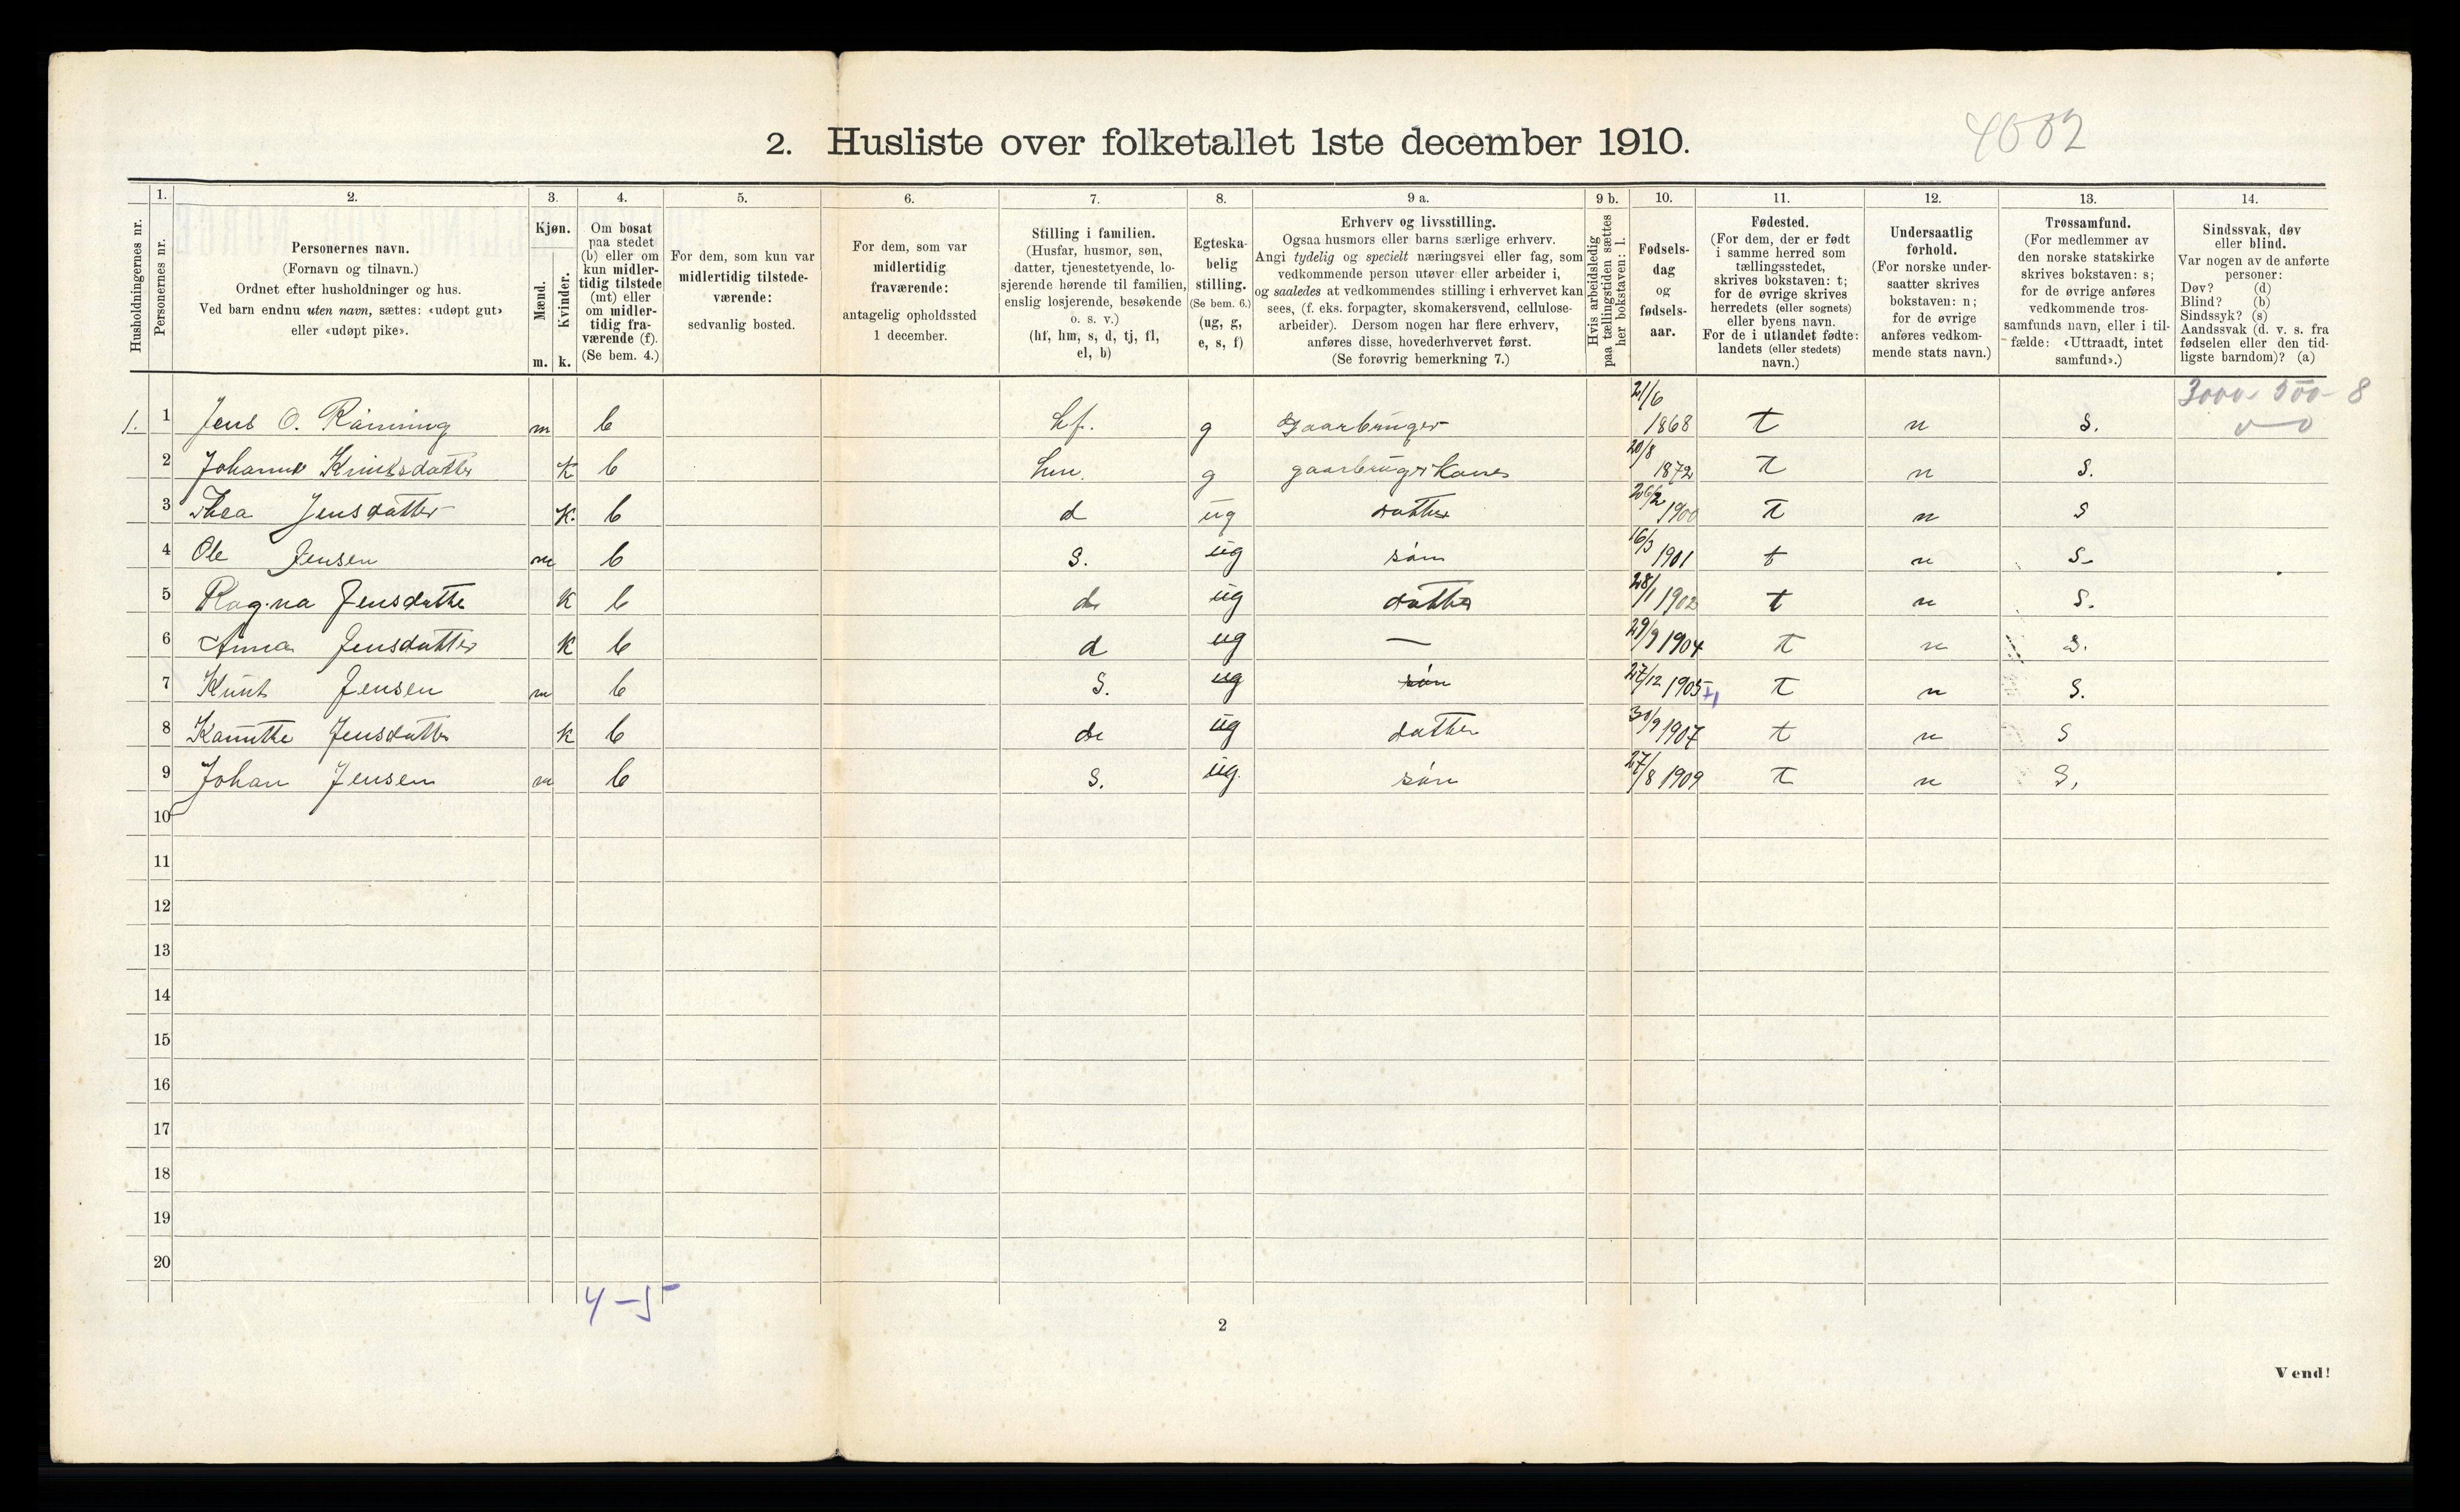 2. Husliste over folketallet 1ste december 1910.
4002
Husholdningernes nr.
1.
Personernes nr.
2.
Personernes navn.
(Fornavn og tilnavn.)
Ordnet efter husholdninger og hus.
Ved barn endnu uten navn, sættes: «udøpt gut»
eller «udøpt pike».
3.
Kjøn.
Mænd.
m.
Kvinder.
k.
4.
Om bosat
paa stedet
(b) eller om
kun midler-
tidig tilstede
(mt) eller
om midler-
tidig fra-
værende (f).
(Se bem. 4.)
5.
For dem, som kun var
midlertidig tilstede-
værende:
sedvanlig bosted.
6.
For dem, som var
midlertidig
fraværende:
antagelig opholdssted
1 december.
7.
Stilling i familien.
(Husfar, husmor, søn,
datter, tjenestetyende, lo-
sjerende hørende til familien,
enslig losjerende, besøkende
o. s. v.)
(hf, hm, s, d, tj, fl,
el, b)
8.
Egteska-
belig
stilling.
(Se bem. 6.)
(ug, g,
e, s, f)
9 a.
Erhverv og livsstilling.
Ogsaa husmors eller barns særlige erhverv.
Angi tydelig og specielt næringsvei eller fag, som
vedkommende person utøver eller arbeider i,
og saaledes at vedkommendes stilling i erhvervet kan
sees, (f. eks. forpagter, skomakersvend, cellulose-
arbeider). Dersom nogen har flere erhverv,
anføres disse, hovederhvervet først.
(Se forøvrig bemerkning 7.)
9 b.
Hvis arbeidsledig
paa tællingstiden sættes
her bokstaven: l.
10.
Fødsels-
dag
og
fødsels-
aar.
11.
Fødested.
(For dem, der er født
i samme herred som
tællingsstedet,
skrives bokstaven: t;
for de øvrige skrives
herredets (eller sognets)
eller byens navn.
For de i utlandet fødte:
landets (eller stedets)
navn.)
12.
Undersaatlig
forhold.
(For norske under-
saatter skrives
bokstaven: n;
for de øvrige
anføres vedkom-
mende stats navn.)
13.
Trossamfund.
(For medlemmer av
den norske statskirke
skrives bokstaven: s;
for de øvrige anføres
vedkommende tros-
samfunds navn, eller i til-
fælde: «Uttraadt, intet
samfund».)
14.
Sindssvak, døv
eller blind.
Var nogen av de anførte
personer:
Døv? (d)
Blind? (b)
Sindssyk? (s)
Aandssvak (d. v. s. fra
fødselen eller den tid-
ligste barndom)? (a)
3000 - 500 - 8
1. 1 Jens O. Rønning m b hf. g gaarbruger 21/6 1868 t n s.
2 Johanne Knutsdatter k b hm. g gaarbruger Kone 20/8 1872 t n s.
3 Thea Jensdatter k. b d ug datter 26/2 1900 t n s
4 Ole Jensen m b s. ug søn 16/3 1901 t n s.
5 Ragna Jensdatter k b d ug datter 28/1 1902 t n s.
6 Anna Jensdatter k b d ug — 29/9 1904 t n s.
7 Knut Jensen m b s. ug søn 27/12 1905 +1 t n s.
8 Jensdatter k b d ug datter 30/9 1907 t n s
9 Johan Jensen m b s. ug. søn 27/8 1909 t n s.
10
11
12
13
14
15
16
17
18
19
20
4 – 5
2
Vend!